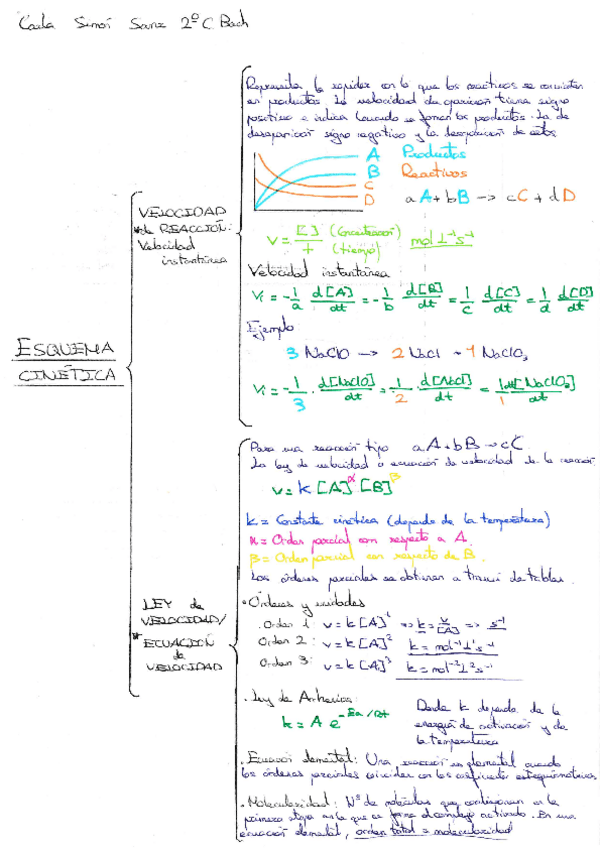 Carla Simoi Sanz 2º C Bach
Representa la rapidez con la que los reactivos se convierten
en productos. La velocidad de aparición tiene signo
positivo e indica cuando se forman los productos. La de
desaparición signo negativo y la desaparición de estos
A Productos
B Reactivos
C
D
a A + b B → c C + d D
VELOCIDAD
de REACCIÓN:
Velocidad
instantánea
V = [ ] (Concentración) / t (tiempo) mol L⁻¹ s⁻¹
Velocidad instantánea
Vi = -1/a d[A]/dt = -1/b d[B]/dt = 1/c d[C]/dt = 1/d d[D]/dt
Ejemplo
3 NaClO → 2 NaCl + 1 NaClO₃
Vi = -1/3 · d[NaClO]/dt = 1/2 · d[NaCl]/dt = 1/1 d[NaClO₃]/dt
ESQUEMA
CINÉTICA
Para una reacción tipo aA + bB → cC
La ley de velocidad o ecuación de velocidad de la reacción
v = k [A]^α [B]^β
k = Constante cinética (depende de la temperatura)
α = Orden parcial con respecto a A.
β = Orden parcial con respecto de B.
Los órdenes parciales se obtienen a través de tablas.
LEY de
VELOCIDAD/
* ECUACIÓN
de
VELOCIDAD
• Órdenes y unidades
Orden 1: v = k [A]¹ => k = v/[A] => s⁻¹
Orden 2: v = k [A]² k = mol⁻¹ L¹ s⁻¹
Orden 3: v = k [A]³ k = mol⁻² L² s⁻¹
. Ley de Arrhenius:
k = A e^-Ea/Rt
Donde k depende de la
energía de activación y de
la temperatura
. Ecuación elemental: Una reacción es elemental cuando
los órdenes parciales coinciden con los coeficientes estequiométricos.
. Molecularidad: Nº de moléculas que en la
primera etapa en la que se forma el complejo activado. En una
ecuación elemental, orden total = molecularidad